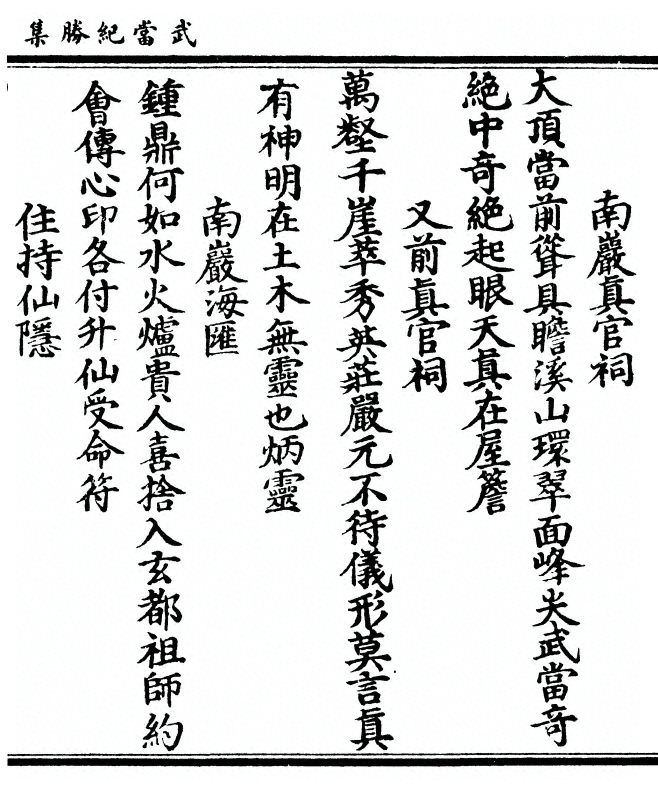 武當紀勝集
南巖真官祠
大頂當前聳具瞻溪山環翠面峰尖武當奇
絕中奇絕起眼天真在屋簷
又前真官祠
萬壑千崖萃秀英莊嚴元不待儀形莫言真
有神明在土木無靈也炳靈
南巖海匯
鍾鼎何如水火爐貴人喜捨入玄都祖師約
會傳心印各付升仙受命符
住持仙隱